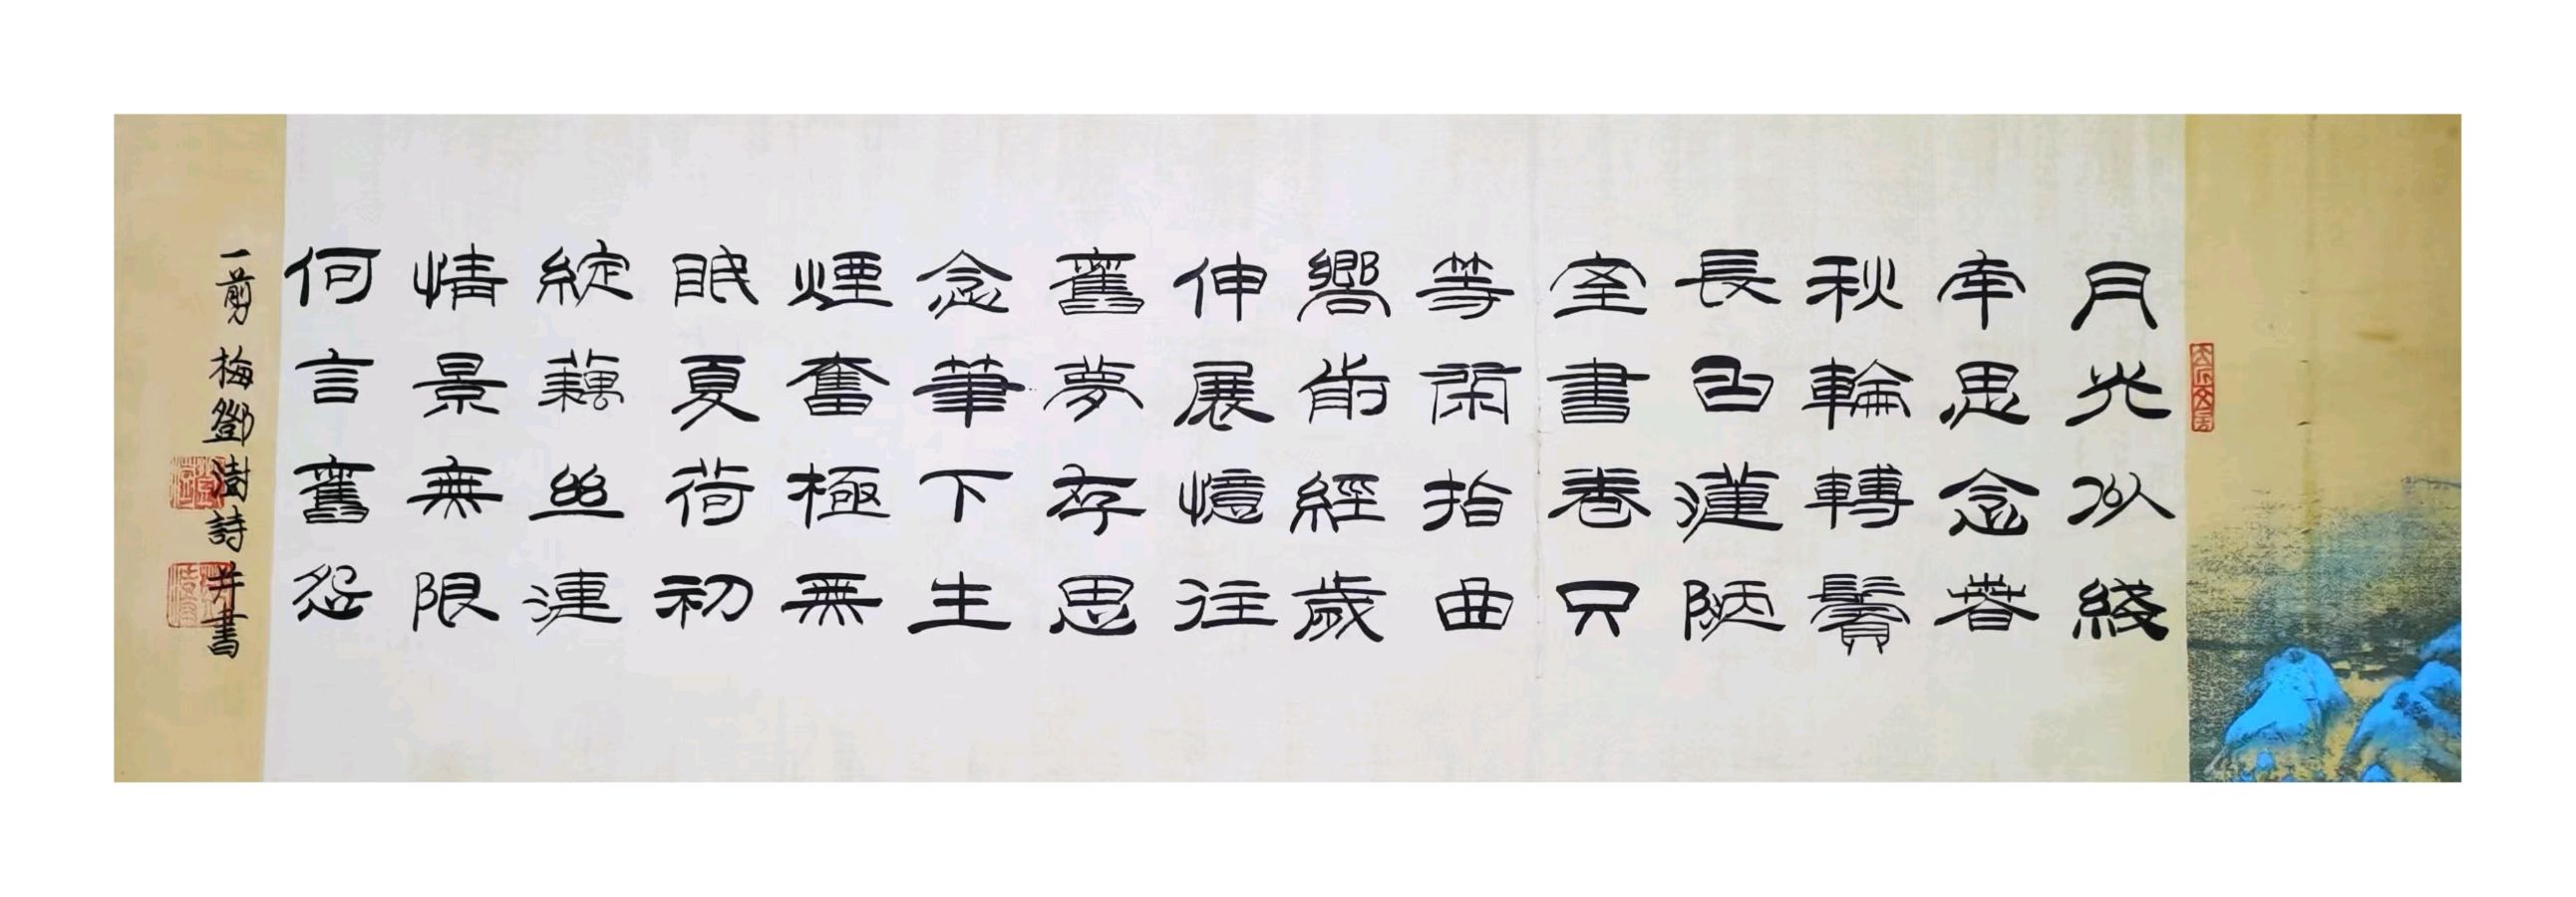 月光似綫
牽思念春
秋輪轉鬢
長白陋
室書卷只
等閑指曲
嚮前經歲
伸展憶往
舊夢存思
念筆下生
煙奮極無
眠夏荷初
綻藕絲漣
情景無限
何言舊怨
一剪梅鄧澍詩并書